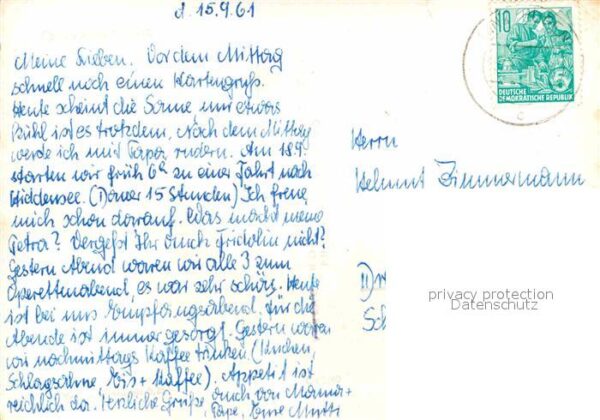 d. 15.9.61
Meine Lieben. Vor dem Mittag
schnell noch einen Kartengruß.
Heute scheint die Sonne nur etwas
kühl ist es trotzdem. Nach dem Mittag
werde ich mit Papa rudern. Am 18.9.
starten wir früh 6h zu einer Fahrt nach
Hiddensee. (Dauer 15 Stunden) Ich freue
mich schon darauf. Was macht meine
Petra? Vergeßt Ihr auch Fridolin nicht?
Gestern Abend waren wir alle 3 zum
Operettenabend, es war sehr schön. Heute
ist bei uns Empfangsabend. Für die
Abende ist immer gesorgt. Gestern waren
wir nachmittags Kaffee trinken (Kuchen,
Schlagsahne Eis + Kaffee). Appetit ist
reichlich da. Herzliche Grüße, auch von Mama +
Papa, Eure Mutti
10
DEUTSCHE
DEMOKRATISCHE REPUBLIK
5
c
Herrn
Helmut Zimmermann
Sch
privacy protection
Datenschutz